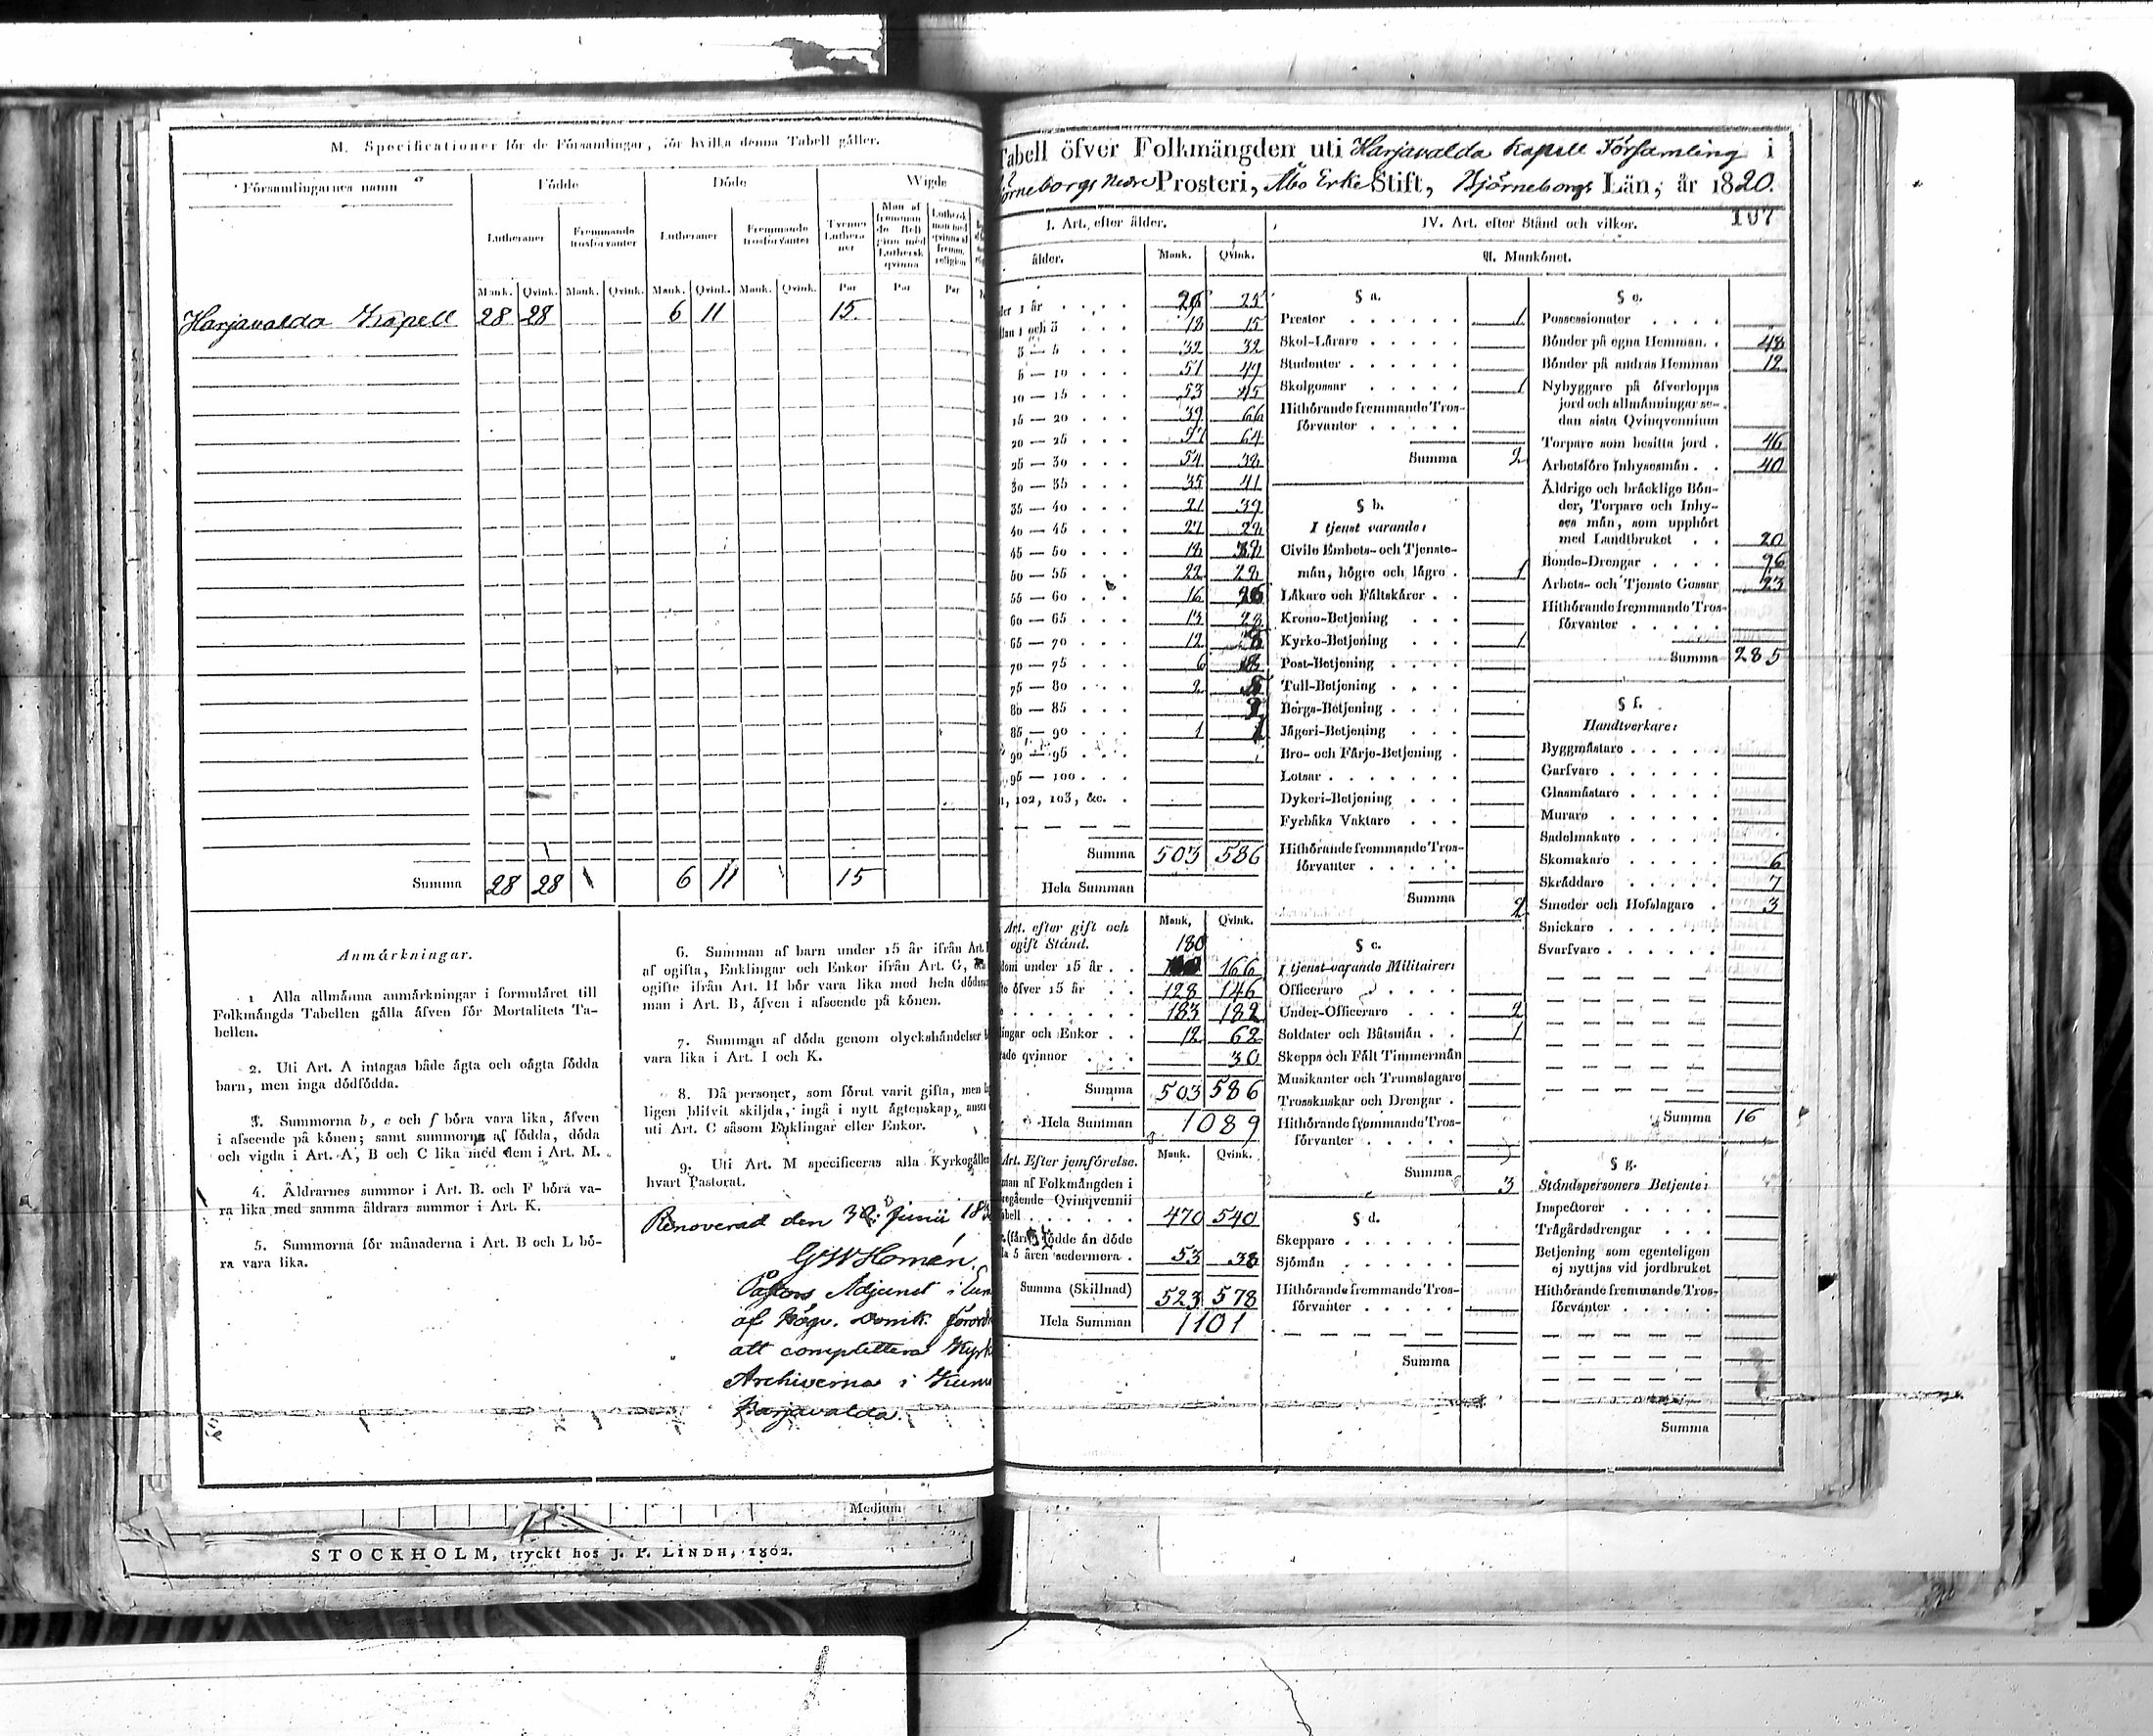 M. Specificationer för de Församlingar, för hvilka denna Tabell gäller.
Församlingarnes namn
Födde
Döde
Wigde
Lutheraner
Fremmande trosförvanter
Lutheraner
Fremmande trosförvanter
Tvenne Lutheraner
Man af fremmande Religion med Luthersk qvinna
Luthersk man med qvinna af fremm. religion
Mank. Qvink. Mank. Qvink. Mank. Qvink. Mank. Qvink. Par Par Par
Harjavalda Kapell 28 28 6 11 15
Summa 28 28 6 11 15
Anmärkningar.
1 Alla allmänna anmärkningar i formuläret till
Folkmängds Tabellen gälla äfven för Mortalitets Ta-
bellen.
2. Uti Art. A intagas både ägta och oägta födda
barn, men inga dödfödda.
3. Summorna b, e och f böra vara lika, äfven
i afseende på könen; samt summorna af födda, döda
och vigda i Art. A, B och C lika med dem i Art. M.
4. Åldrarnes summor i Art. B. och F böra va-
ra lika med samma åldrars summor i Art. K.
5. Summorna för månaderna i Art. B och L bö-
ra vara lika.
6. Summan af barn under 15 år ifrån Art.
af ogifta, Enklingar och Enkor ifrån Art. G,
ogifte ifrån Art. H bör vara lika med hela
man i Art. B, äfven i afseende på könen.
7. Summan af döda genom olyckshändelser
vara lika i Art. I och K.
8. Då personer, som förut varit gifta, men
ligen blifvit skiljda, ingå i nytt ägtenskap,
uti Art. C såsom Enklingar eller Enkor.
9. Uti Art. M specificeras alla
hvart Pastorat.
Renoverad den 30. Junii
G W Homén.
Pastors Adjunct i
af Högv. Domk.
att complettera
Archiverna i
Harjavalda.
Medium
STOCKHOLM, tryckt hos J. P. LINDH, 1802.
Tabell öfver Folkmängden uti Harjavalda Kapell Församling i
Björneborgs Nedre Prosteri, Åbo Erke Stift, Björneborgs Län, år 1820.
107
I. Art. efter ålder.
ålder. Mank. Qvink.
1 år 26 25
1 och 3 18 15
3 — 5 32 32
5 — 10 51 49
10 — 15 53 45
15 — 20 39 66
20 — 25 57 64
25 — 30 54 38
30 — 35 35 41
35 — 40 21 39
40 — 45 27 28
45 — 50 18
50 — 55 22 28
55 — 60 16
60 — 65 13 28
65 — 70 12
70 — 75 6
75 — 80 2
80 — 85
85 — 90 1 1
90 — 95
95 — 100
102, 103, &c.
Summa 503 586
Hela Summan
Art. efter gift och
ogift Stånd.
Mank. Qvink.
180
under 15 år 166
öfver 15 år 128 146
183 182
och Enkor 12 62
qvinnor 30
Summa 503 586
Hela Summan 1089
Art. Efter jemförelse. Mank. Qvink.
af Folkmängden i
Qvinqvennii
470 540
födde än döde
5 åren sedermera 53 38
Summa (Skillnad) 523 578
Hela Summan 1101
IV. Art. efter Stånd och vilkor.
A. Mankönet.
§ a.
Prester 1
Skol-Lärare
Studenter
Skolgossar 1
Hithörande fremmande Tros-
förvanter
Summa 2
§ b.
I tjenst varande:
Civile Embets- och Tjenste-
män, högre och lägre 1
Läkare och Fältskärer
Krono-Betjening
Kyrko-Betjening 1
Post-Betjening
Tull-Betjening
Bergs-Betjening
Jägeri-Betjening
Bro- och Färje-Betjening
Lotsar
Dykeri-Betjening
Fyrbåks Vaktare
Hithörande fremmande Tros-
förvanter
Summa 2
§ c.
I tjenst varande Militairer:
Officerare
Under-Officerare 2
Soldater och Båtsmän 1
Skepps och Fält Timmermän
Musikanter och Trumslagare
Trosskuskar och Drengar
Hithörande fremmande Tros-
förvanter
Summa 3
§ d.
Skeppare
Sjömän
Hithörande fremmande Tros-
förvanter
Summa
§ e.
Possessionater
Bönder på egna Hemman 48
Bönder på andras Hemman 12
Nybyggare på öfverlopps
jord och allmänningar se-
dan sista Qvinqvennium
Torpare som besitta jord 46
Arbetsföre Inhysesmän 40
Åldrige och bräcklige Bön-
der, Torpare och Inhy-
ses män, som upphört
med Landtbruket 20
Bonde-Drengar 96
Arbets- och Tjenste Gossar 23
Hithörande fremmande Tros-
förvanter
Summa 285
§ f.
Handtverkare:
Byggmästare
Garfvare
Glasmästare
Murare
Sadelmakare
Skomakare 6
Skräddare 7
Smeder och Hofslagare 3
Snickare
Svarfvare
Summa 16
§ g.
Ståndspersoners Betjente:
Inspectorer
Trägårdsdrengar
Betjening som egenteligen
ej nyttjas vid jordbruket
Hithörande fremmande Tros-
förvanter
Summa